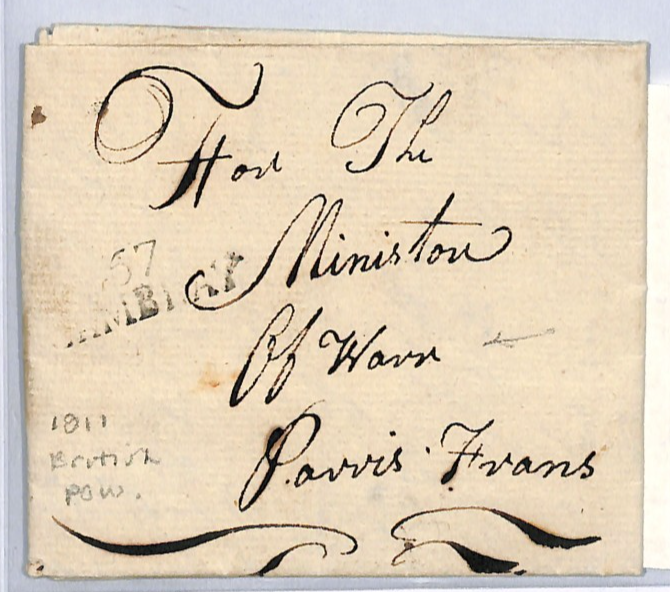 For The
Ministor
Of Warr
Parris Frans
57
CAMBRAY
1811
British
POW.